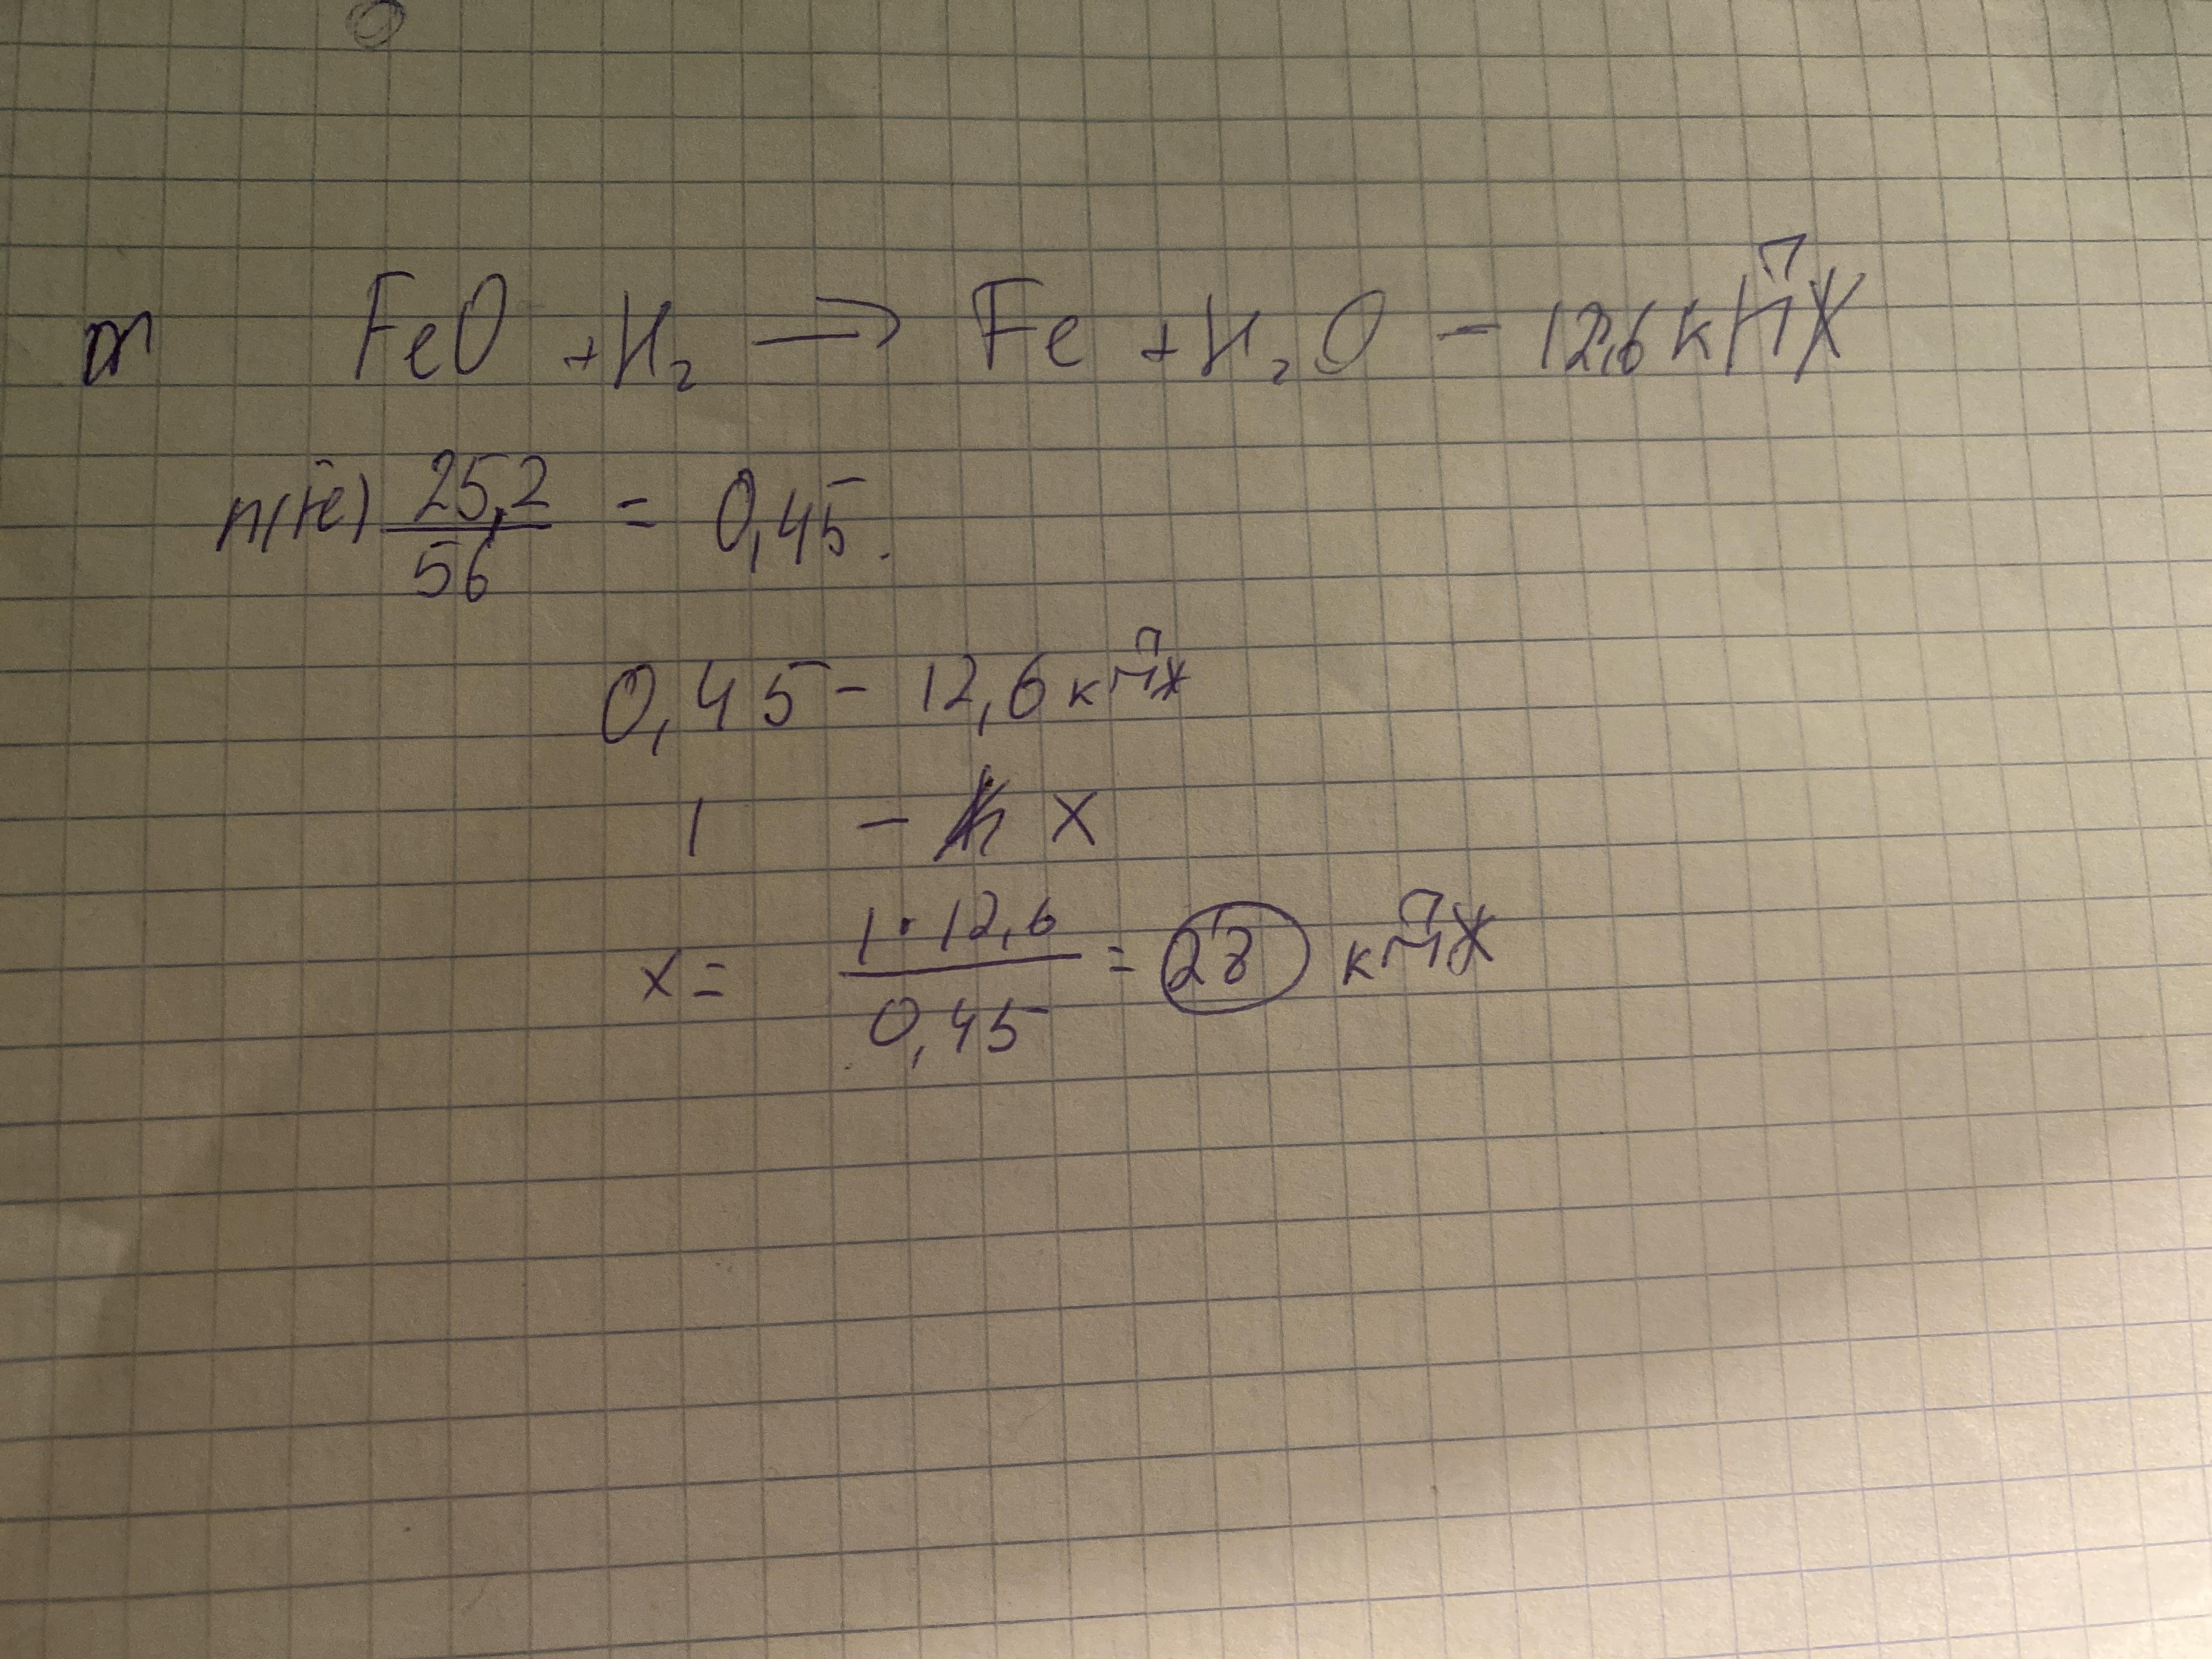 FeO + H₂ → Fe + H₂O − 12,6 кДж
n(Fe) 25,2/56 = 0,45.
0,45 − 12,6 кДж
1 − x
x = 1·12,6/0,45 = 28 кДж